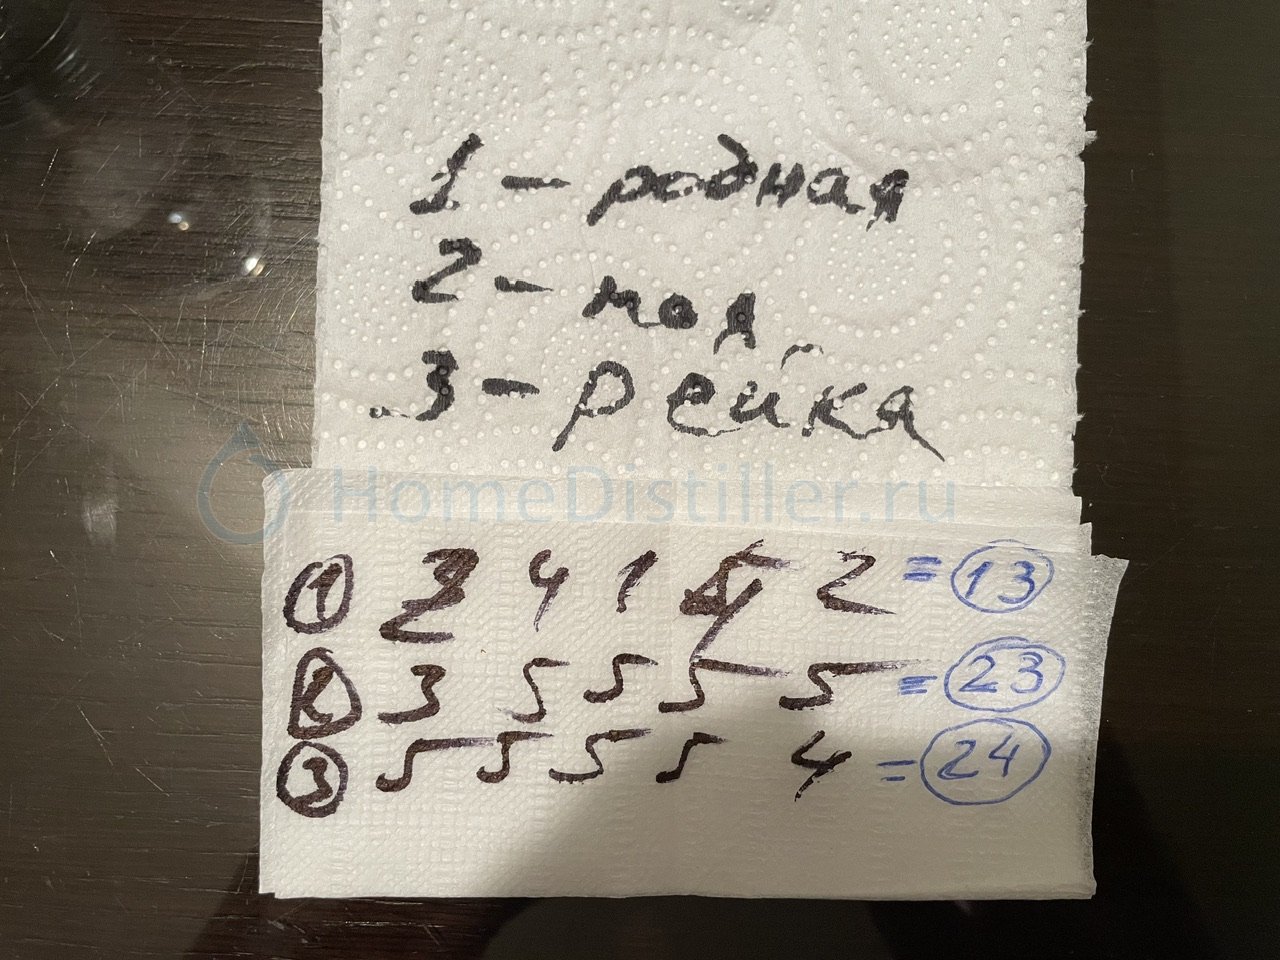 1 - родная
2 - моя
3 - рейка
HomeDistiller.ru
① 2 4 1 4 2 = 13
② 3 5 5 5 5 = 23
③ 5 5 5 5 4 = 24